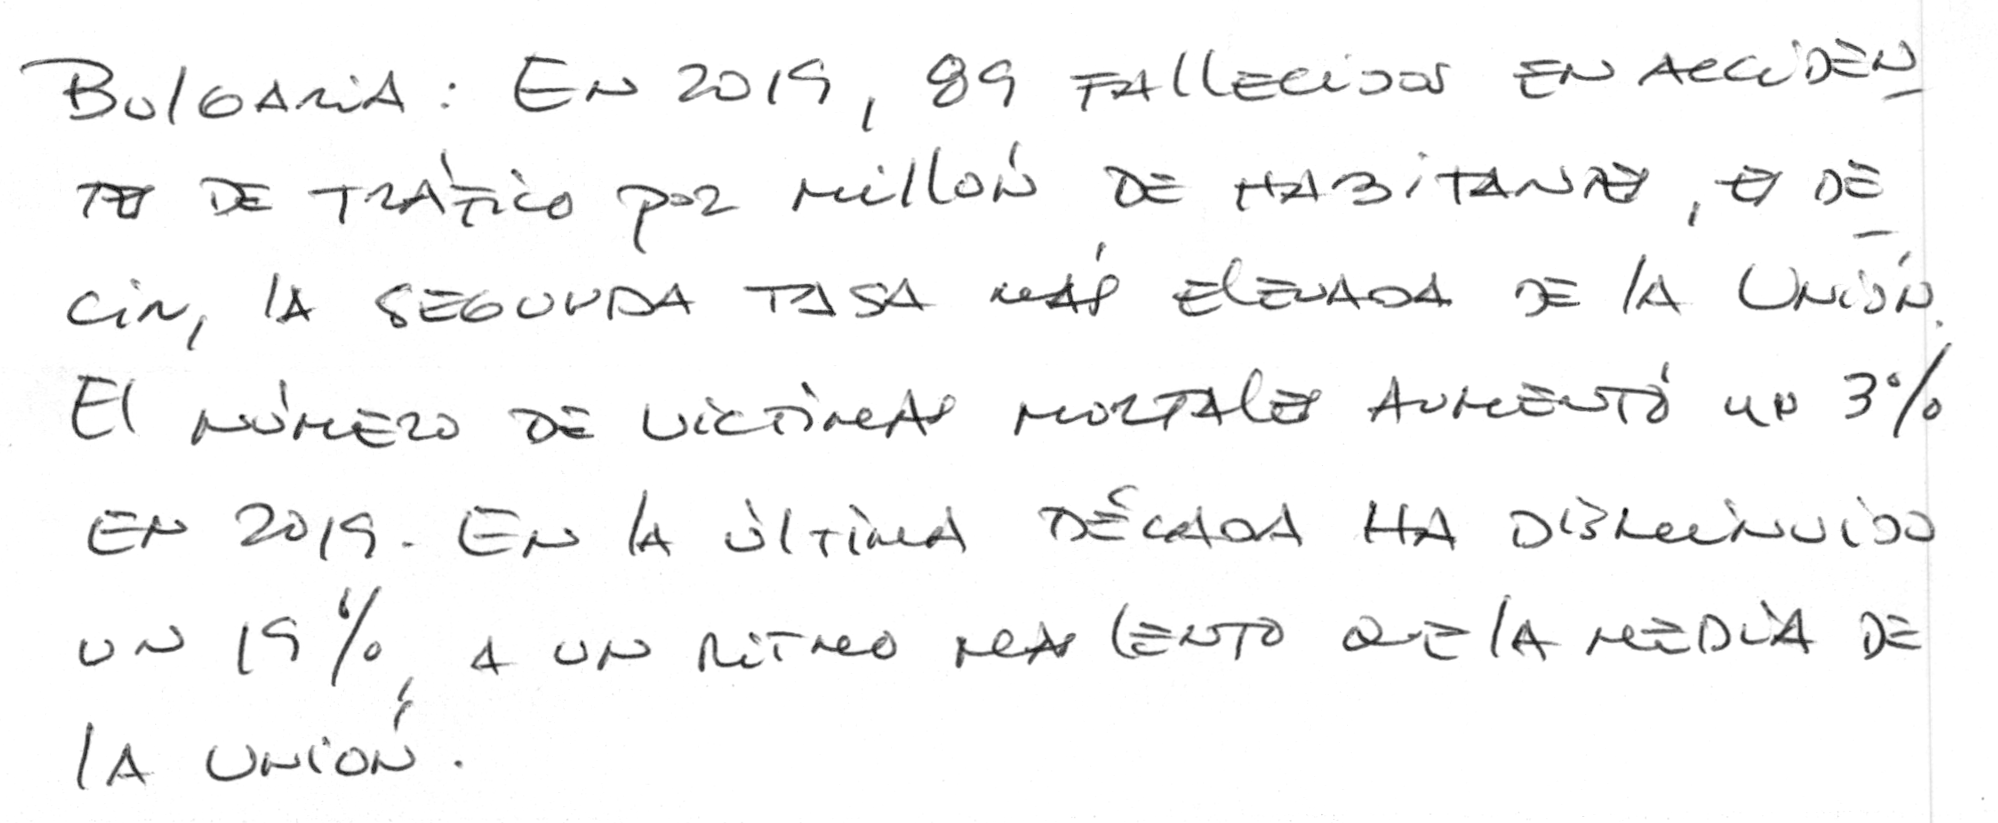 Bulgaria: En 2019, 89 fallecidos en acciden
tes de tráfico por millón de habitantes, es de
cir, la segunda tasa más elevada de la Unión.
El número de víctimas mortales aumentó un 3%
en 2019. En la última década ha disminuido
un 19%, a un ritmo más lento que la media de
la Unión.